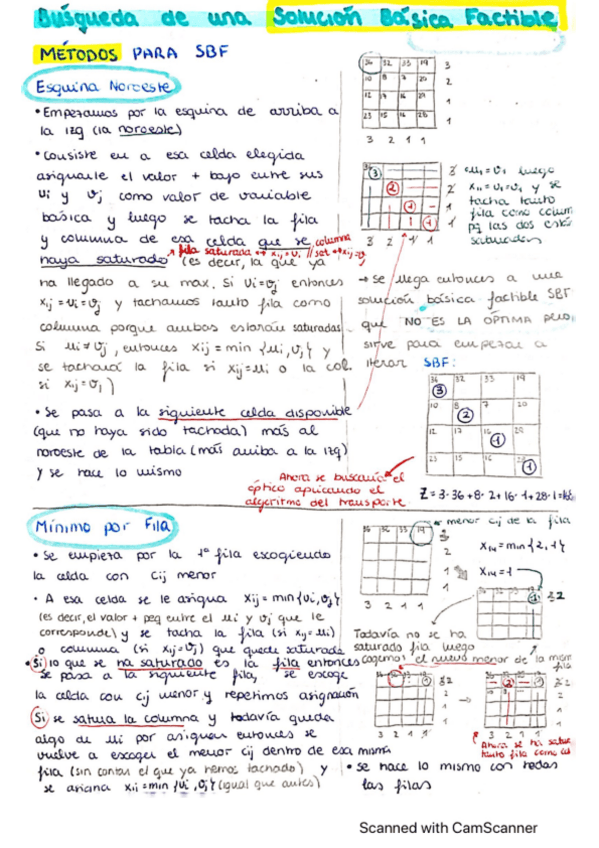 Búsqueda de una Solución Básica Factible
MÉTODOS PARA SBF
Esquina Noroeste
• Empezamos por la esquina de arriba a
la izq (la noroeste)
• Consiste en a esa celda elegida
asignarle el valor + bajo entre sus
ui y vj como valor de variable
básica y luego se tacha la fila
y columna de esa celda que se
haya saturado (es decir, la que ya
ha llegado a su max. Si ui=vj entonces
xij = ui = vj y tachamos tanto fila como
columna porque ambas estarán saturadas
Si ui≠vj, entonces xij = min {ui,vj} y
se tachará la fila si xij=ui o la col.
si xij=vj)
• Se pasa a la siguiente celda disponible
(que no haya sido tachada) más al
noroeste de la tabla (más arriba a la izq)
y se hace lo mismo
36 32 33 19 3
10 8 7 20 2
12 17 16 29 1
23 15 16 28 1
3 2 1 1
luego
y se
tacha tanto
fila como column
pq las dos están
saturadas
3 2 1 1
→ se llega entonces a una
solución básica factible SBF
que NO ES LA ÓPTIMA pero
sirve para empezar a
iterar SBF:
36 32 33 19
3
10 8 7 20
2
12 17 16 29
1
23 15 16 28
1
Ahora se buscaría el
óptico aplicando el
algoritmo del transporte
Z = 3·36+8·2+16·1+28·1=
Mínimo por Fila
• Se empieza por la 1º fila escogiendo
la celda con cij menor
• A esa celda se le asigna xij = min{ui,vj}
(es decir, el valor + peq entre el ui y vj que le
corresponde) y se tacha la fila (si xij=ui)
o columna (si xij=vj) que quede saturada
• Si lo que se ha saturado es la fila entonces
se pasa a la siguiente fila, se escoge
la celda con cij menor y repetimos asignación
Si se satura la columna y todavía queda
algo de ui por asignar entonces se
vuelve a escoger el menor cij dentro de esa misma
fila (sin contar el que ya hemos tachado) y
se asigna xij = min {ui,vj} (igual que antes)
menor cij de la fila
36 32 33 19
X14 = min{2,1}
X14 = 1
3 2 1 1
Todavía no se ha
saturado fila luego
cogemos el nuevo menor de la misma
fila
3 2 1 1
Ahora se ha satur
tanto fila como col
• Se hace lo mismo con todas
las filas
Scanned with CamScanner